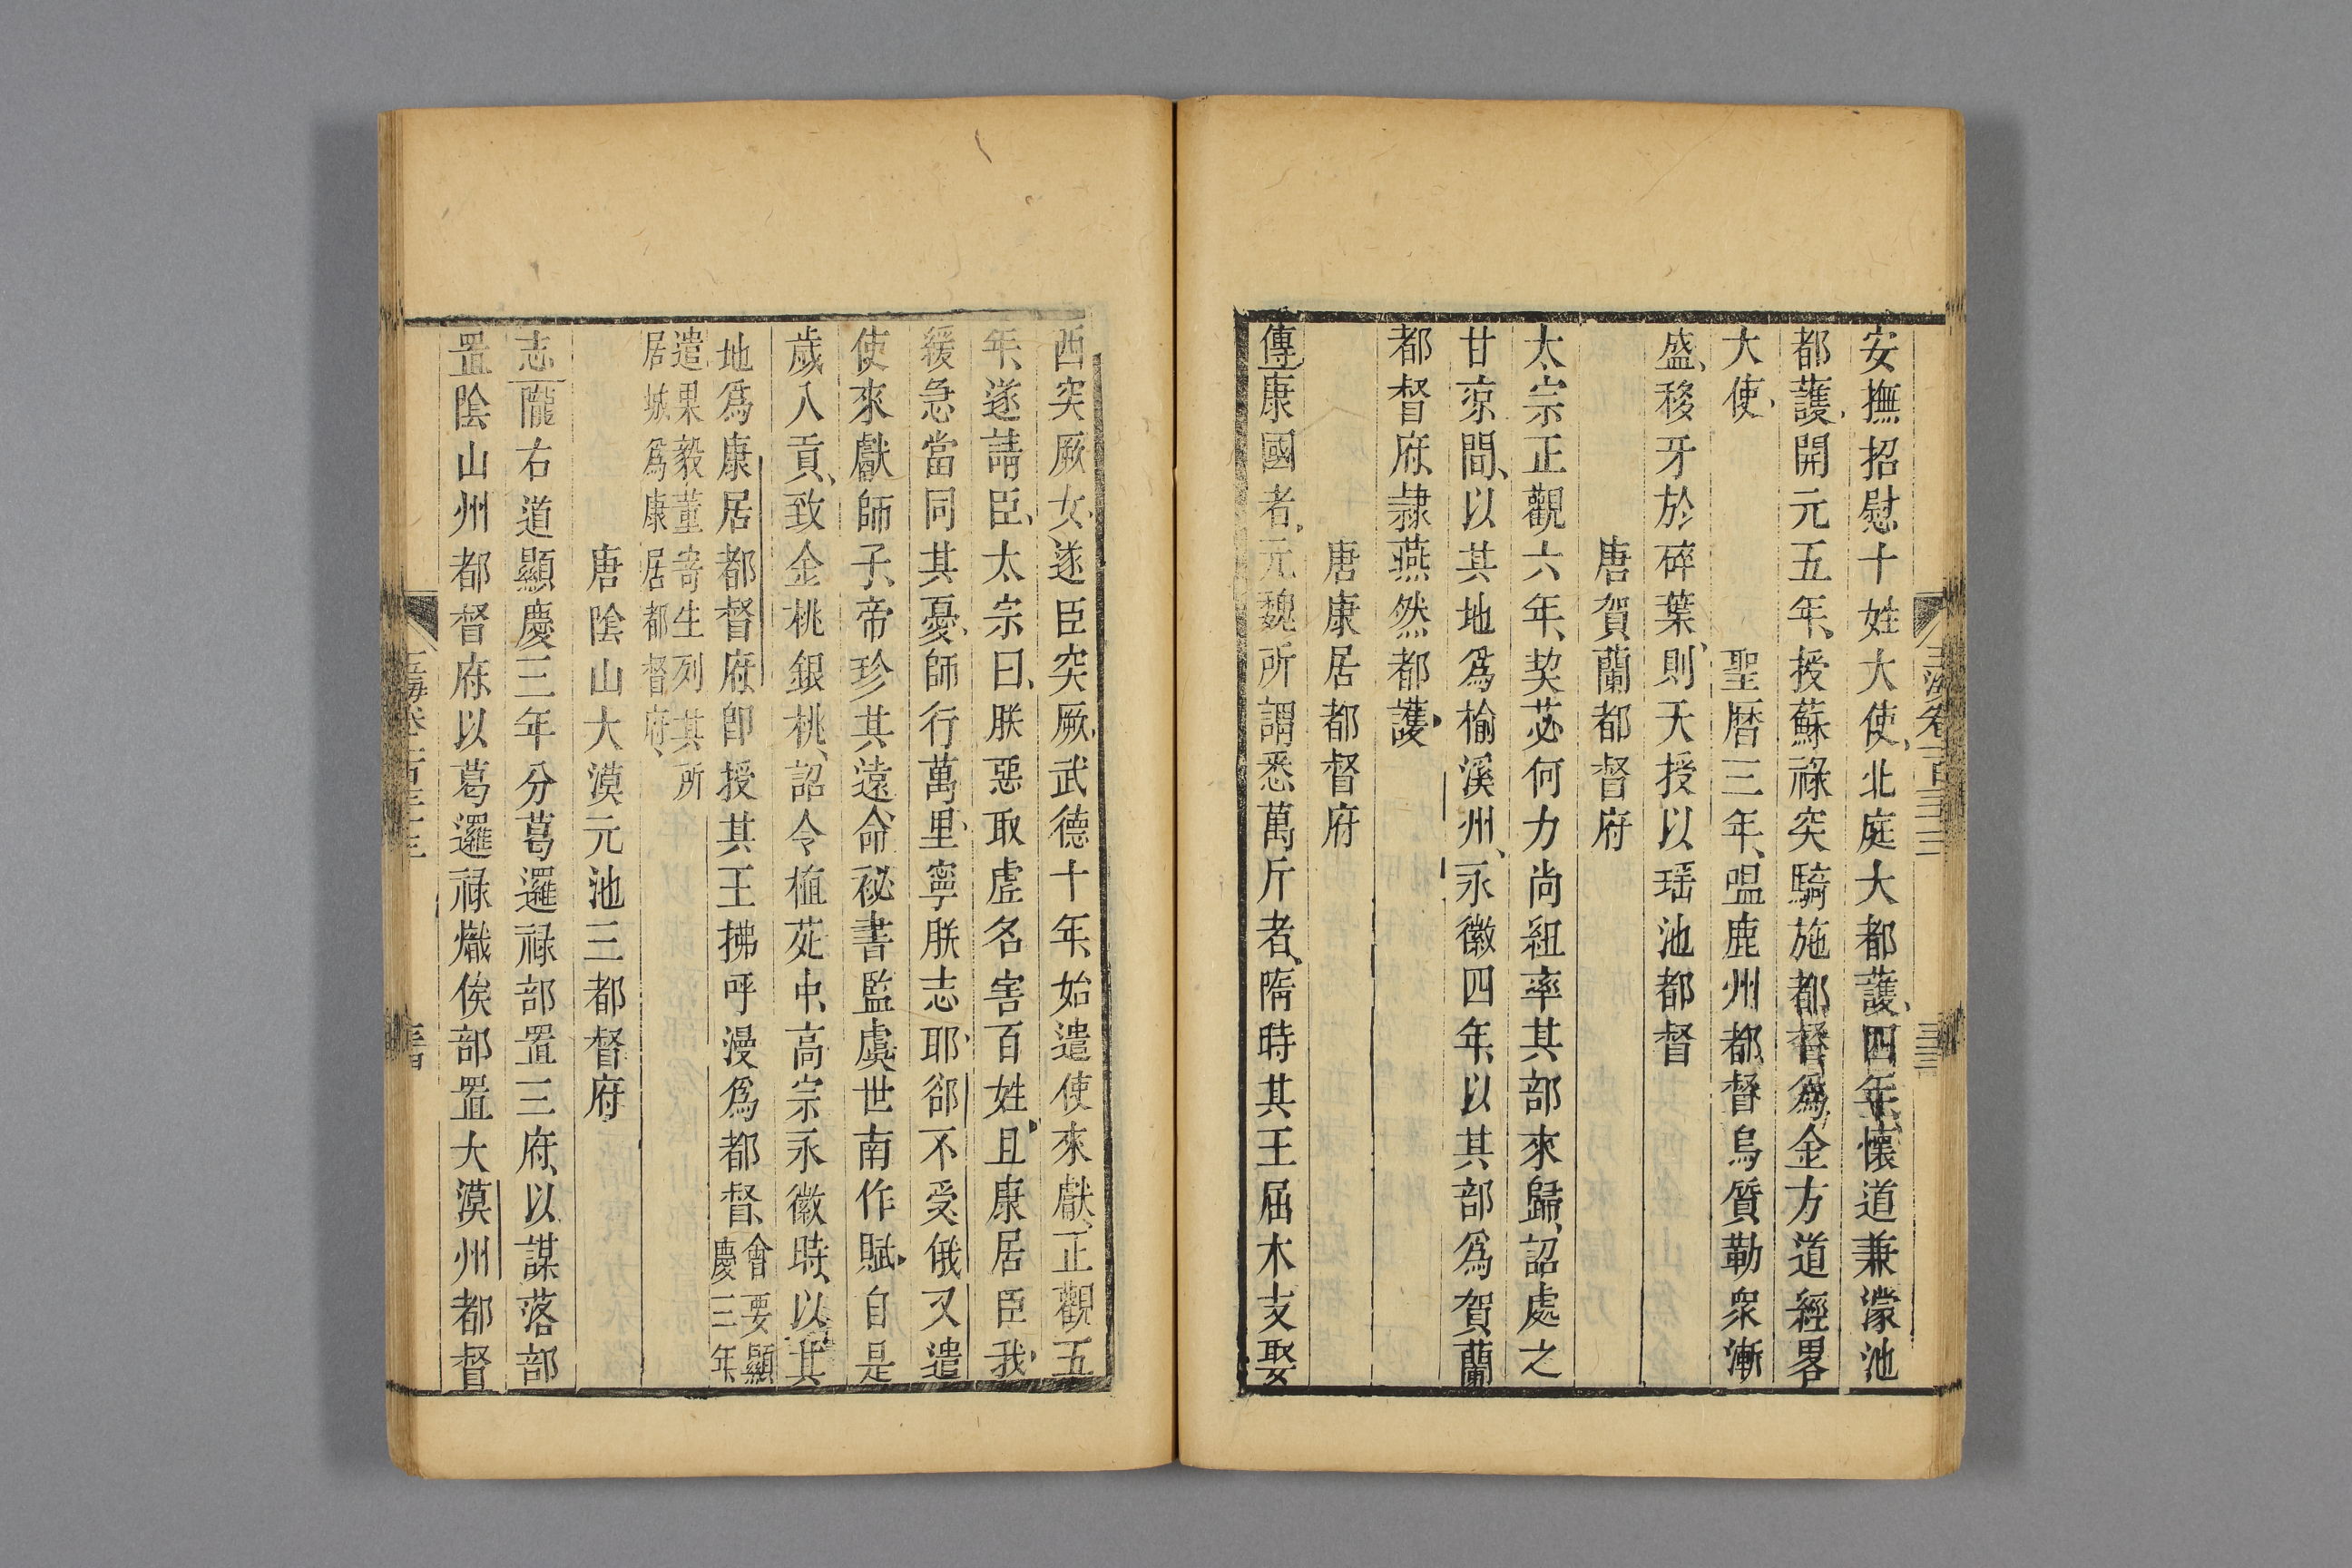 安撫招慰十姓大使北庭大都護四年懷道兼濛池
都護開元五年授蘇祿突騎施都督爲金方道經畧
大使　聖曆三年嗢鹿州都督烏質勒衆漸
盛移牙於碎葉則天授以瑶池都督
唐賀蘭都督府
太宗正觀六年契苾何力尚紐率其部來歸詔處之
甘凉間以其地爲榆溪州永徽四年以其部爲賀蘭
都督府隷燕然都護
唐康居都督府
傳康國者元魏所謂悉萬斤者隋時其王屈木支娶
西突厥女遂臣突厥武德十年始遣使來獻正觀五
年遂請臣太宗曰朕惡取虛名害百姓且康居臣我
緩急當同其憂師行萬里寧朕志耶郤不受俄又遣
使來獻師子帝珍其遠命祕書監虞世南作賦自是
歲入貢致金桃銀桃詔令植苑中高宗永徽時以其
地爲康居都督府即授其王拂呼漫爲都督
會要顯
慶三年
遣果毅董寄生列其所
居城爲康居都督府
唐陰山大漠元池三都督府
志隴右道顯慶三年分葛邏禄部置三府以謀落部
置陰山州都督府以葛邏禄熾俟部置大漠州都督